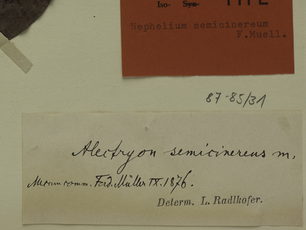 Iso- Syn- TYPE
Nephelium semicinereum
F.Muell.
87-85/31
Alectryon semicinereus m.
comm. Ferd. Müller IX. 1876.
Determ. L. Radlkofer.